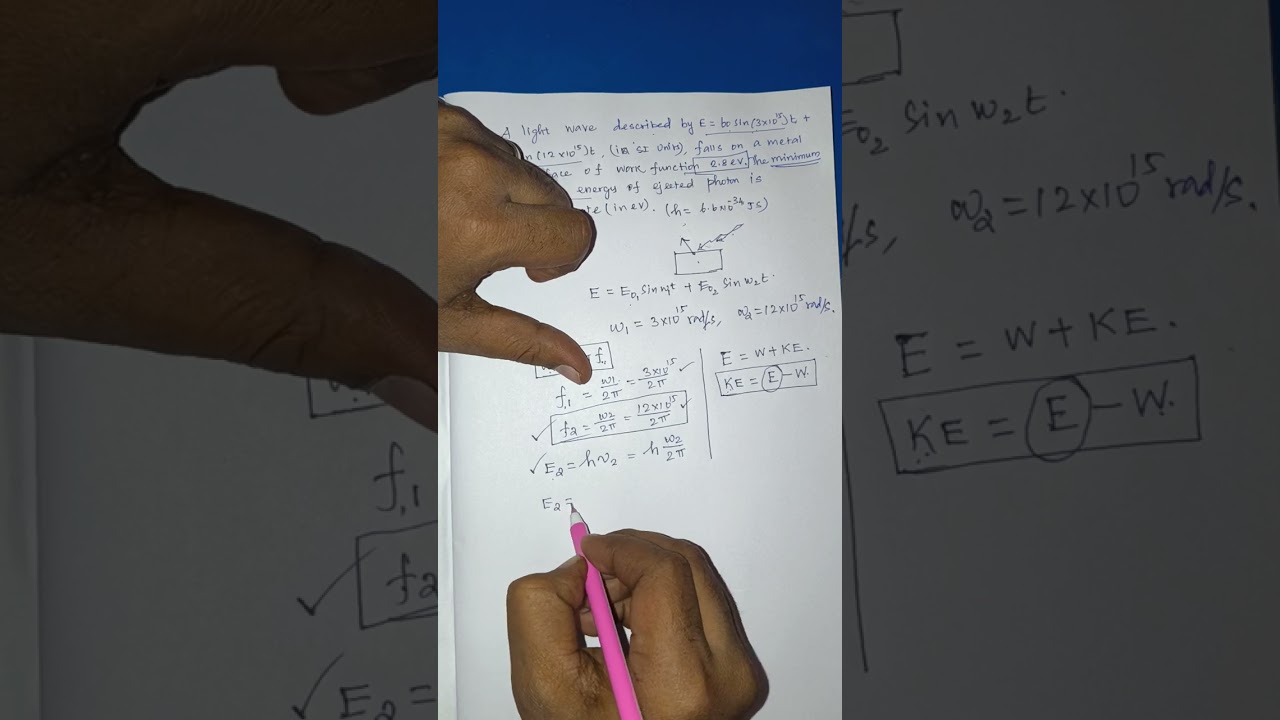 A light wave described by E = 60 sin(3×10¹⁵)t +
(12×10¹⁵)t, (in SI Units), falls on a metal
of work function 2.8 ev. The minimum
energy of ejected photon is
(in ev). (h = 6.6×10⁻³⁴ JS)
E = E₀₁ sin w₁t + E₀₂ sin w₂t.
w₁ = 3×10¹⁵ rad/s, w₂ = 12×10¹⁵ rad/s.
f₁ = w₁/2π = 3×10¹⁵/2π ✓
✓ f₂ = w₂/2π = 12×10¹⁵/2π ✓
✓ E₂ = hν₂ = h w₂/2π
E₂ =
E = W + KE.
KE = E − W.